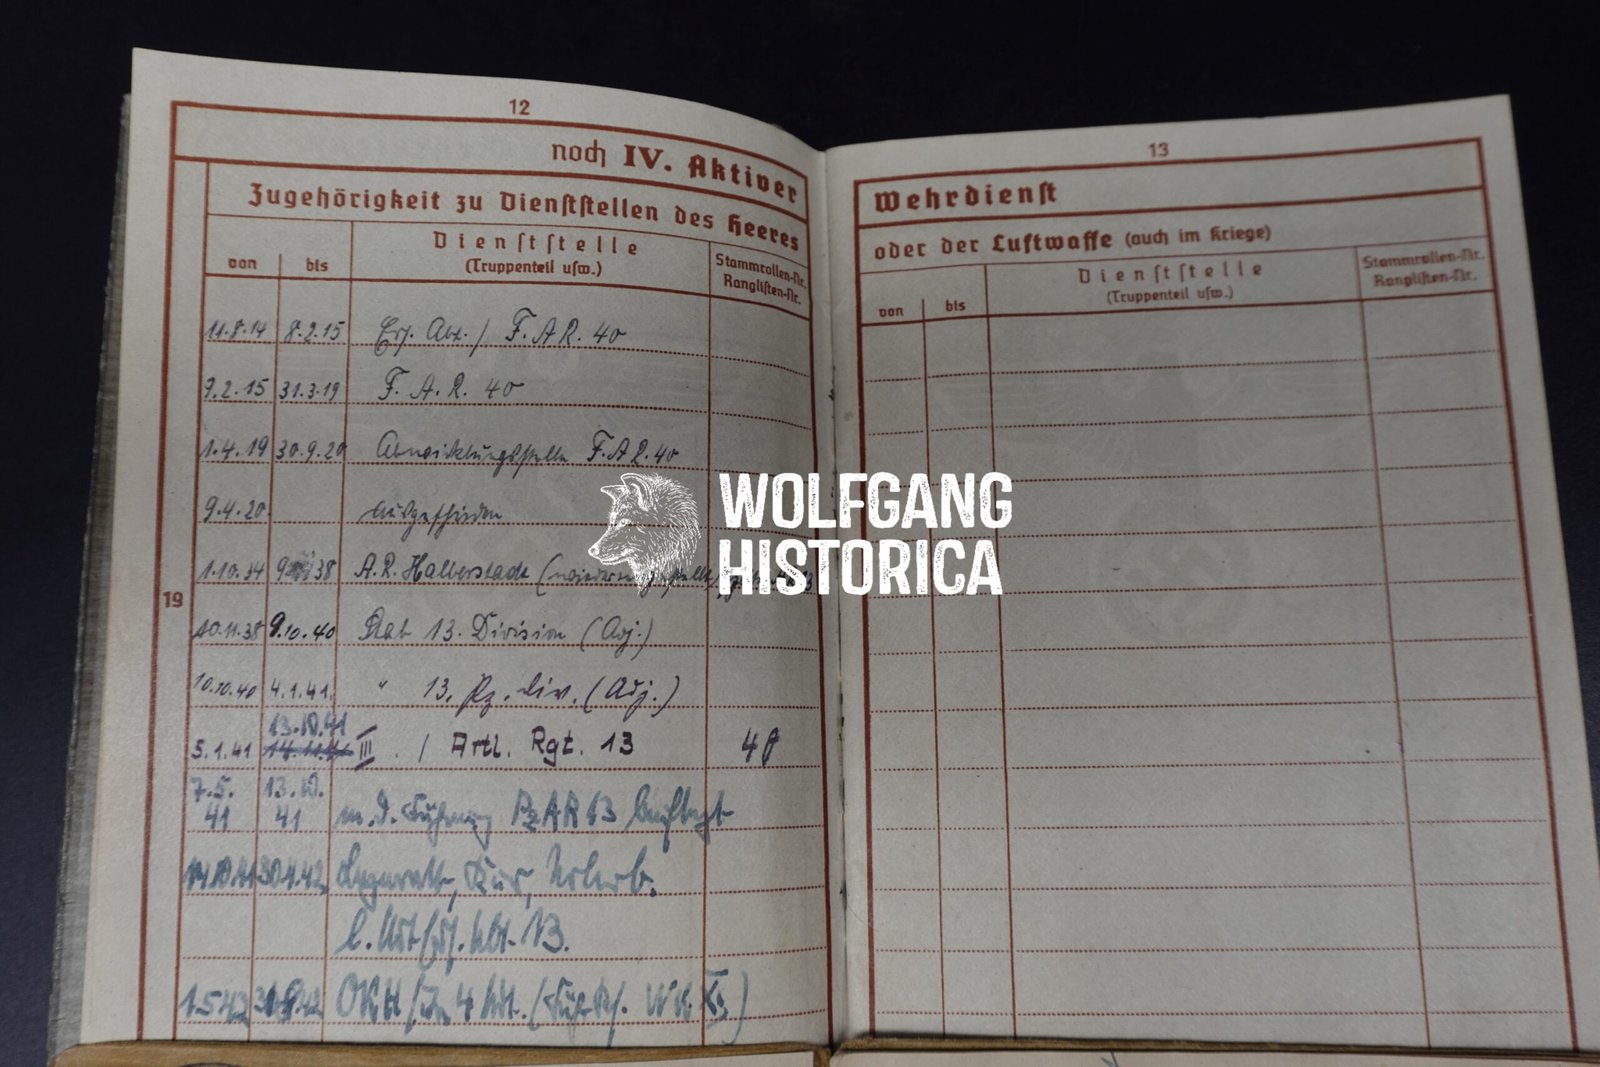 12
noch IV. Aktiver
Zugehörigkeit zu Dienststellen des Heeres
von bis Dienststelle (Truppenteil usw.) Stammrollen-Nr. Ranglisten-Nr.
11.8.14 8.2.15 Ers. Abt. / F. A R. 40
9.2.15 31.3.19 F. A. R. 40
1.4.19 30.9.20 Abwicklungsstelle F. A R. 40
9.4.20 ausgeschieden
1.10.34 38 A.R. Halberstadt
19
10.11.38 9.10.40 Stab 13. Division (Adj.)
10.10.40 4.1.41. " 13. Pz. Div. (Adj.)
13.10.41
5.1.41 III. / Artl. Rgt. 13 48
7.5. 13.10.
41 41 m. d. Führung PzAR 13 beauftragt
14.10.41 30.4.42 Lazarett, Kur, Urlaub.
13.
1.5.42 OKH
13
Wehrdienst
oder der Luftwaffe (auch im Kriege)
von bis Dienststelle (Truppenteil usw.) Stammrollen-Nr. Ranglisten-Nr.
WOLFGANG
HISTORICA